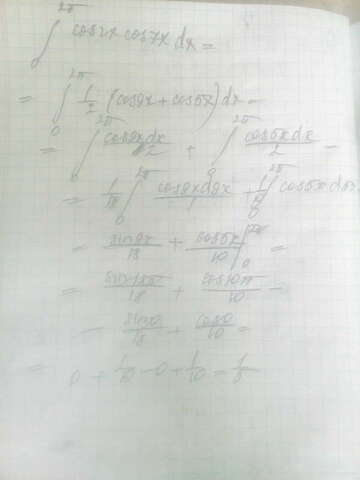 ∫₀^{2π} cos2x cos7x dx =
= ∫₀^{2π} 1/2 (cos9x + cos5x) dx =
= ∫₀^{2π} cos9x dx / 2 + ∫₀^{2π} cos5x dx / 2 =
= 1/18 ∫₀^{2π} cos9x d9x / 1 + ∫₀^{2π} cos5x d5x
= sin9x / 18 + cos5x / 10 |₀^{2π} =
= sin18π / 18 + cos10π / 10 -
- sin0 / 18 + cos0 / 10 =
= 0 + 1/10 - 0 + 1/10 = 1/5